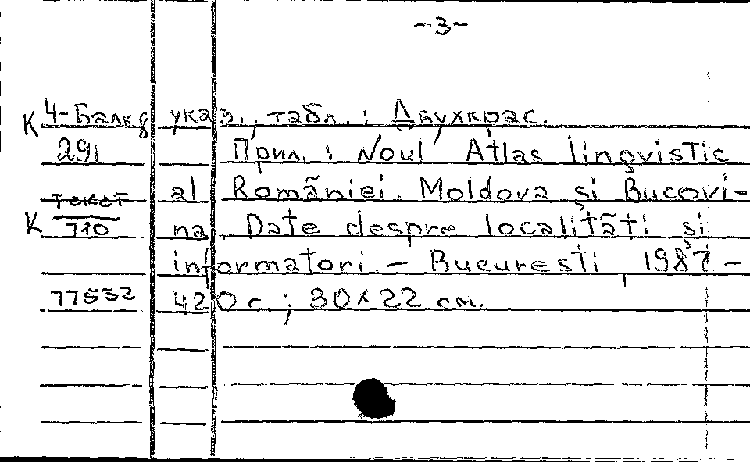 -3-
К 4-Балк8 указ., табл.; Двухкрас.
291 Прил.: Noul Atlas lingvistic
текст al României. Moldova şi Bucovi-
К 710 na. Date despre localităţi şi
informatori. - Bucureşti, 1987 -
77532 420 с.; 30x22 см.